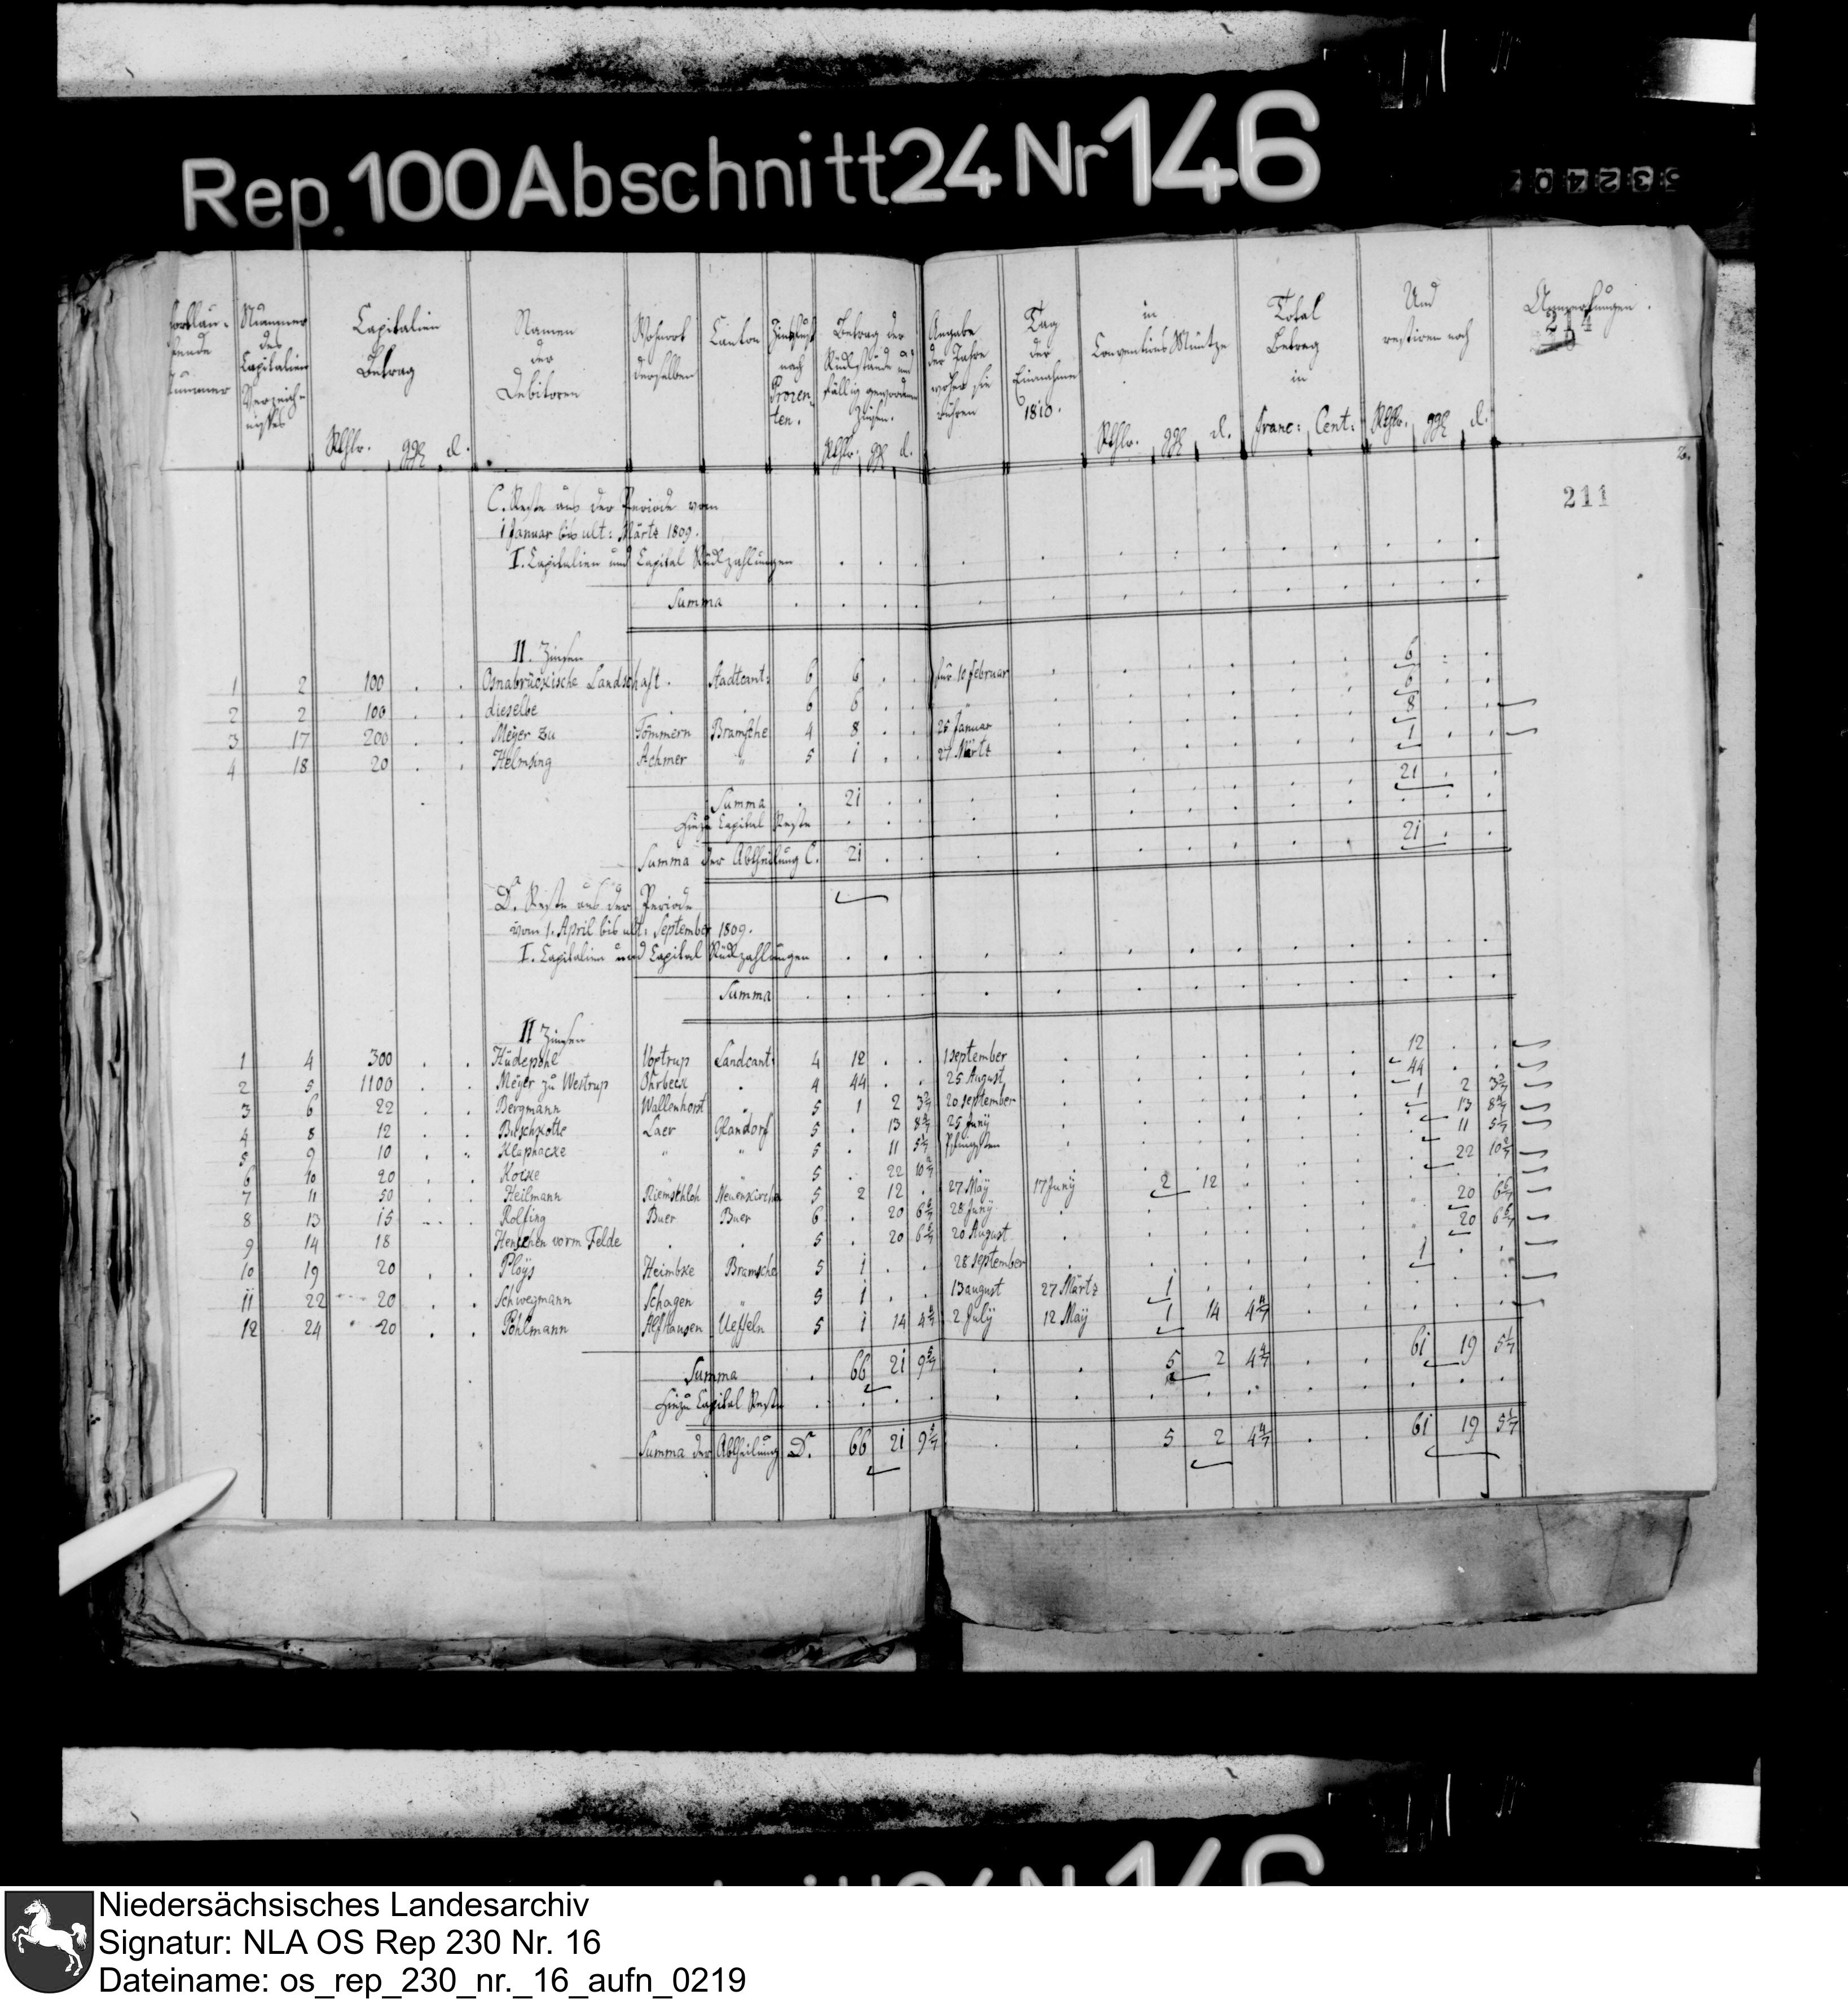 Rep. 100 Abschnitt 24 Nr 146
532407
fortlau-
fende
Nummer
Nummer
des
Capitalien
Verzeich-
nisses
Capitalien
Betrag
Rthlr. ggl d.
Namen
der
Debitoren
Wohnort
derselben
Canton
Zinsfuß
nach
Prozen-
ten.
Betrag der
Rückstände und
fällig gewordenen
Zinsen.
Rthlr. ggl d.
Angabe
der Jahre
woher sie
rühren
Tag
der
Einnahme
1810.
in
Conventions Müntze
Rthlr. ggl d.
Total
Betrag
in
Franc: Cent:
Und
restiren noch
Rthlr. ggl d.
Anmerkungen.
214
211
C. Reste aus der Periode vom
1 Januar bis ult: Märtz 1809.
I. Capitalien und Capital Rückzahlungen
Summa
II. Zinsen
1 2 100 . . Osnabrückische Landschaft . Stadtcant: 6 6 . . für 10 Februar 6 . .
2 2 100 . . dieselbe . . 6 6 . . " 6 . .
3 17 200 . . Meyer zu Tömmern Bramsche 4 8 . . 25 Januar 8 . .
4 18 20 . . Helmsing Achmer " 5 1 . . 27 Märtz 1 . .
Summa . 21 . . 21 . .
Hiezu Capital Reste
Summa der Abtheilung C. 21 . . 21 . .
D. Reste aus der Periode
vom 1. April bis ult: September 1809.
I. Capitalien und Capital Rückzahlungen
Summa
II Zinsen
1 4 300 . . Hüdepohl Voxtrup Landcant: 4 12 . . 1 september 12 . .
2 5 1100 . . Meyer zu Westrup Ohrbeck . 4 44 . . 25 August 44 . .
3 6 22 . . Bergmann Wallenhorst . 5 1 2 3 3/7 20 september 1 2 3 3/7
4 8 12 . . Buschkotte Laer Glandorf 5 . 13 8 4/7 25 Juny . 13 8 4/7
5 9 10 . . Klaphacke " " 5 . 11 5 1/7 Pfingsten . 11 5 1/7
6 10 20 . . Kocke " 5 . 22 10 2/7 . 22 10 2/7
7 11 50 . . Heilmann Riemsthloh Neuenkirchen 5 2 12 . 27 Maÿ 17 Junÿ 2 12 .
8 13 15 . . Rolfing Buer Buer 6 . 20 6 6/7 28 Junÿ " 20 6 6/7
9 14 18 Henschen vorm Felde . . 5 . 20 6 6/7 20 August " 20 6 6/7
10 19 20 . . Ploÿs Heimbke Bramsche 5 1 . . 28 september 1 . .
11 22 20 . . Schwegmann Schagen " 5 1 . . 13 august 27 Märtz 1 . .
12 24 20 . . Pohlmann Alfhausen Ueffeln 5 1 14 4 4/7 2 Julÿ 12 Maÿ 1 14 4 4/7
Summa . 66 21 9 5/7 . . 5 2 4 4/7 . . 61 19 5 1/7
Hiezu Capital Reste
Summa der Abtheilung D. 66 21 9 5/7 . . 5 2 4 4/7 . . 61 19 5 1/7
Niedersächsisches Landesarchiv
Signatur: NLA OS Rep 230 Nr. 16
Dateiname: os_rep_230_nr._16_aufn_0219